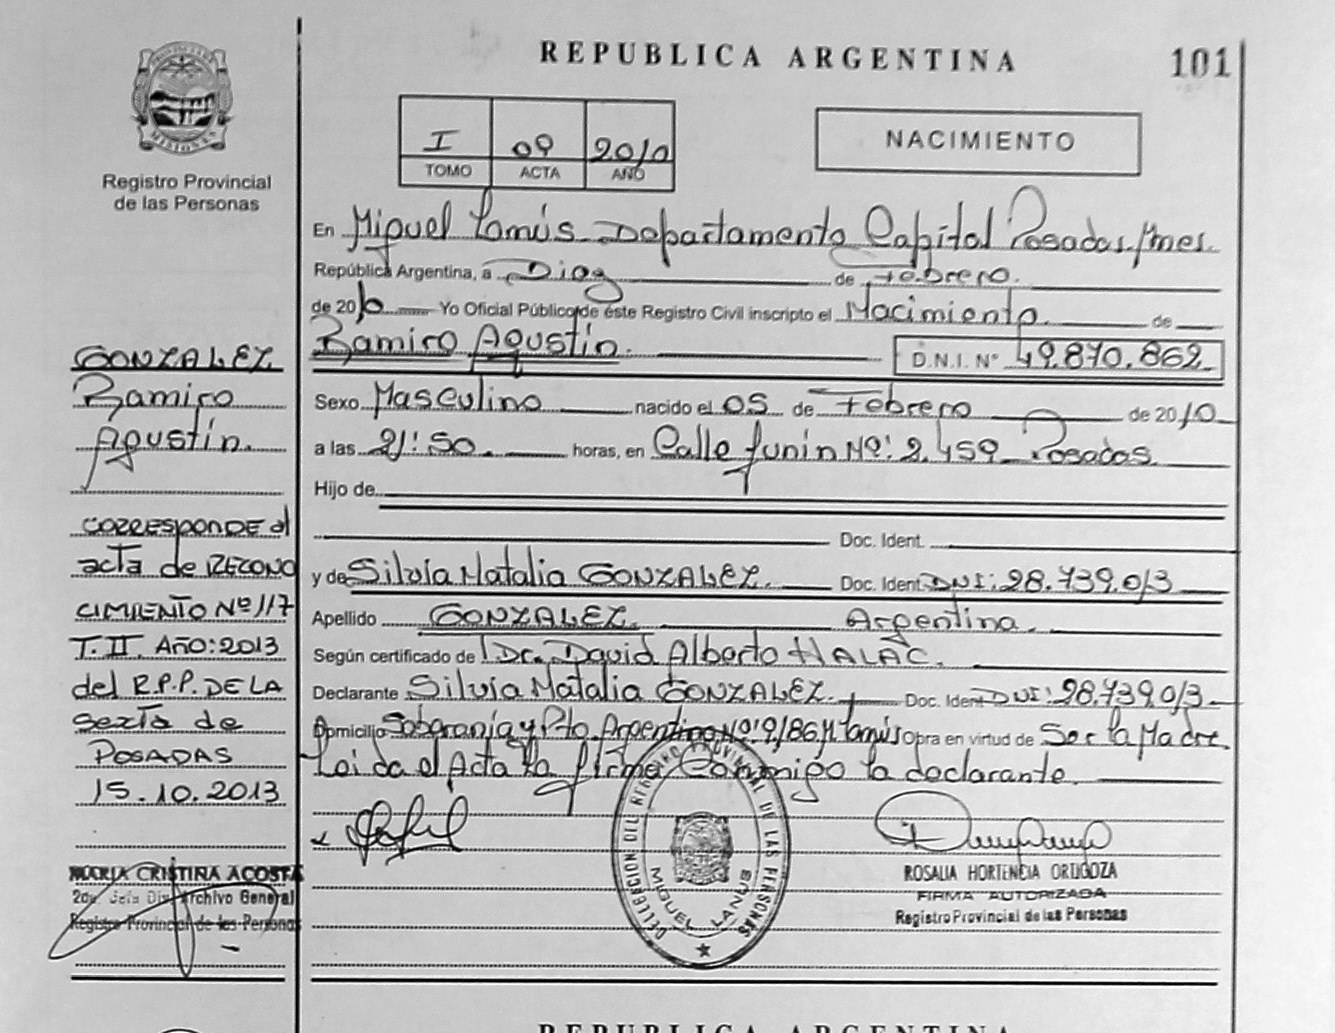 REPUBLICA ARGENTINA
101
PROVINCIA DE
MISIONES
Registro Provincial
de las Personas
I 09 2010
TOMO ACTA AÑO
NACIMIENTO
En Miguel Lanús Departamento Capital Posadas Mnes.
República Argentina, a Diez de Febrero.
de 2010 Yo Oficial Público de este Registro Civil inscripto el Nacimiento de
Ramiro Agustín. D.N.I. Nº 49.870.862
Sexo Masculino nacido el 05 de Febrero de 2010
a las 21:50 horas, en Calle Junín Nº: 2.459 Posadas
Hijo de
Doc. Ident.
y de Silvia Natalia GONZALEZ. Doc. Ident. DNI: 28.739.013
Apellido GONZALEZ. Argentina.
Según certificado de Dr. David Alberto HALAC.
Declarante Silvia Natalia GONZALEZ. Doc. Ident. DNI: 28.739.013
Domicilio Soberanía y Pto. Argentino Nº: 9186 M. Lanús Obra en virtud de Ser la Madre.
Leida el Acta la firma Conmigo la declarante.
GONZALEZ
Ramiro
Agustín.
CORRESPONDE al
acta de RECONO
CIMIENTO Nº 117
T. II. AÑO: 2013
del R.P.P. DE LA
sexta de
POSADAS
15.10.2013
MARIA CRISTINA ACOSTA
2do. Jefe Div. Archivo General
Registro Provincial de las Personas
DELEGACION DEL REGISTRO PROVINCIAL DE LAS PERSONAS
MIGUEL LANUS
ROSALIA HORTENCIA ORTIGOZA
FIRMA AUTORIZADA
Registro Provincial de las Personas
REPUBLICA ARGENTINA